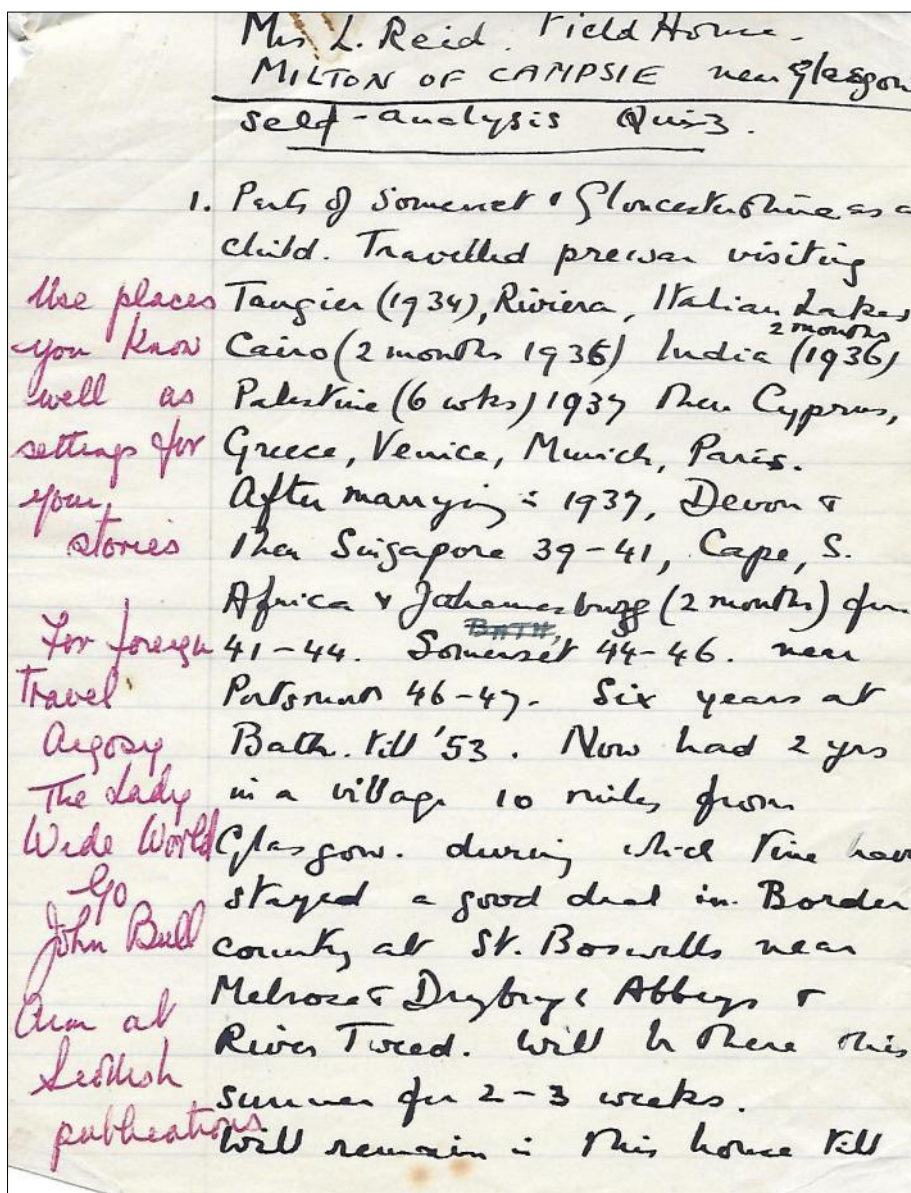 Mrs L. Reid. Field House.
MILTON OF CAMPSIE near Glasgow
Self-analysis Quiz.
1. Parts of Somerset & Gloucestershire as a
child. Travelled prewar visiting
Tangier (1934), Riviera, Italian Lakes
2 months
Cairo (2 months 1936) India (1936)
Palestine (6 wks) 1937 then Cyprus,
Greece, Venice, Munich, Paris.
After marrying in 1937, Devon &
then Singapore 39-41, Cape, S.
Africa & Johannesburg (2 months) for
BATH,
41-44. Somerset 44-46. near
Portsmouth 46-47. Six years at
Bath. till '53. Now had 2 yrs
in a village 10 miles from
Glasgow. during which time have
stayed a good deal in Border
country at St. Boswells near
Melrose & Dryburgh Abbeys &
River Tweed. Will be there this
summer for 2-3 weeks.
Will remain in this house till
Use places
you know
well as
settings for
your
stories
For foreign
Travel
Argosy
The Lady
Wide World
Go
John Bull
Aim at
Scottish
publications